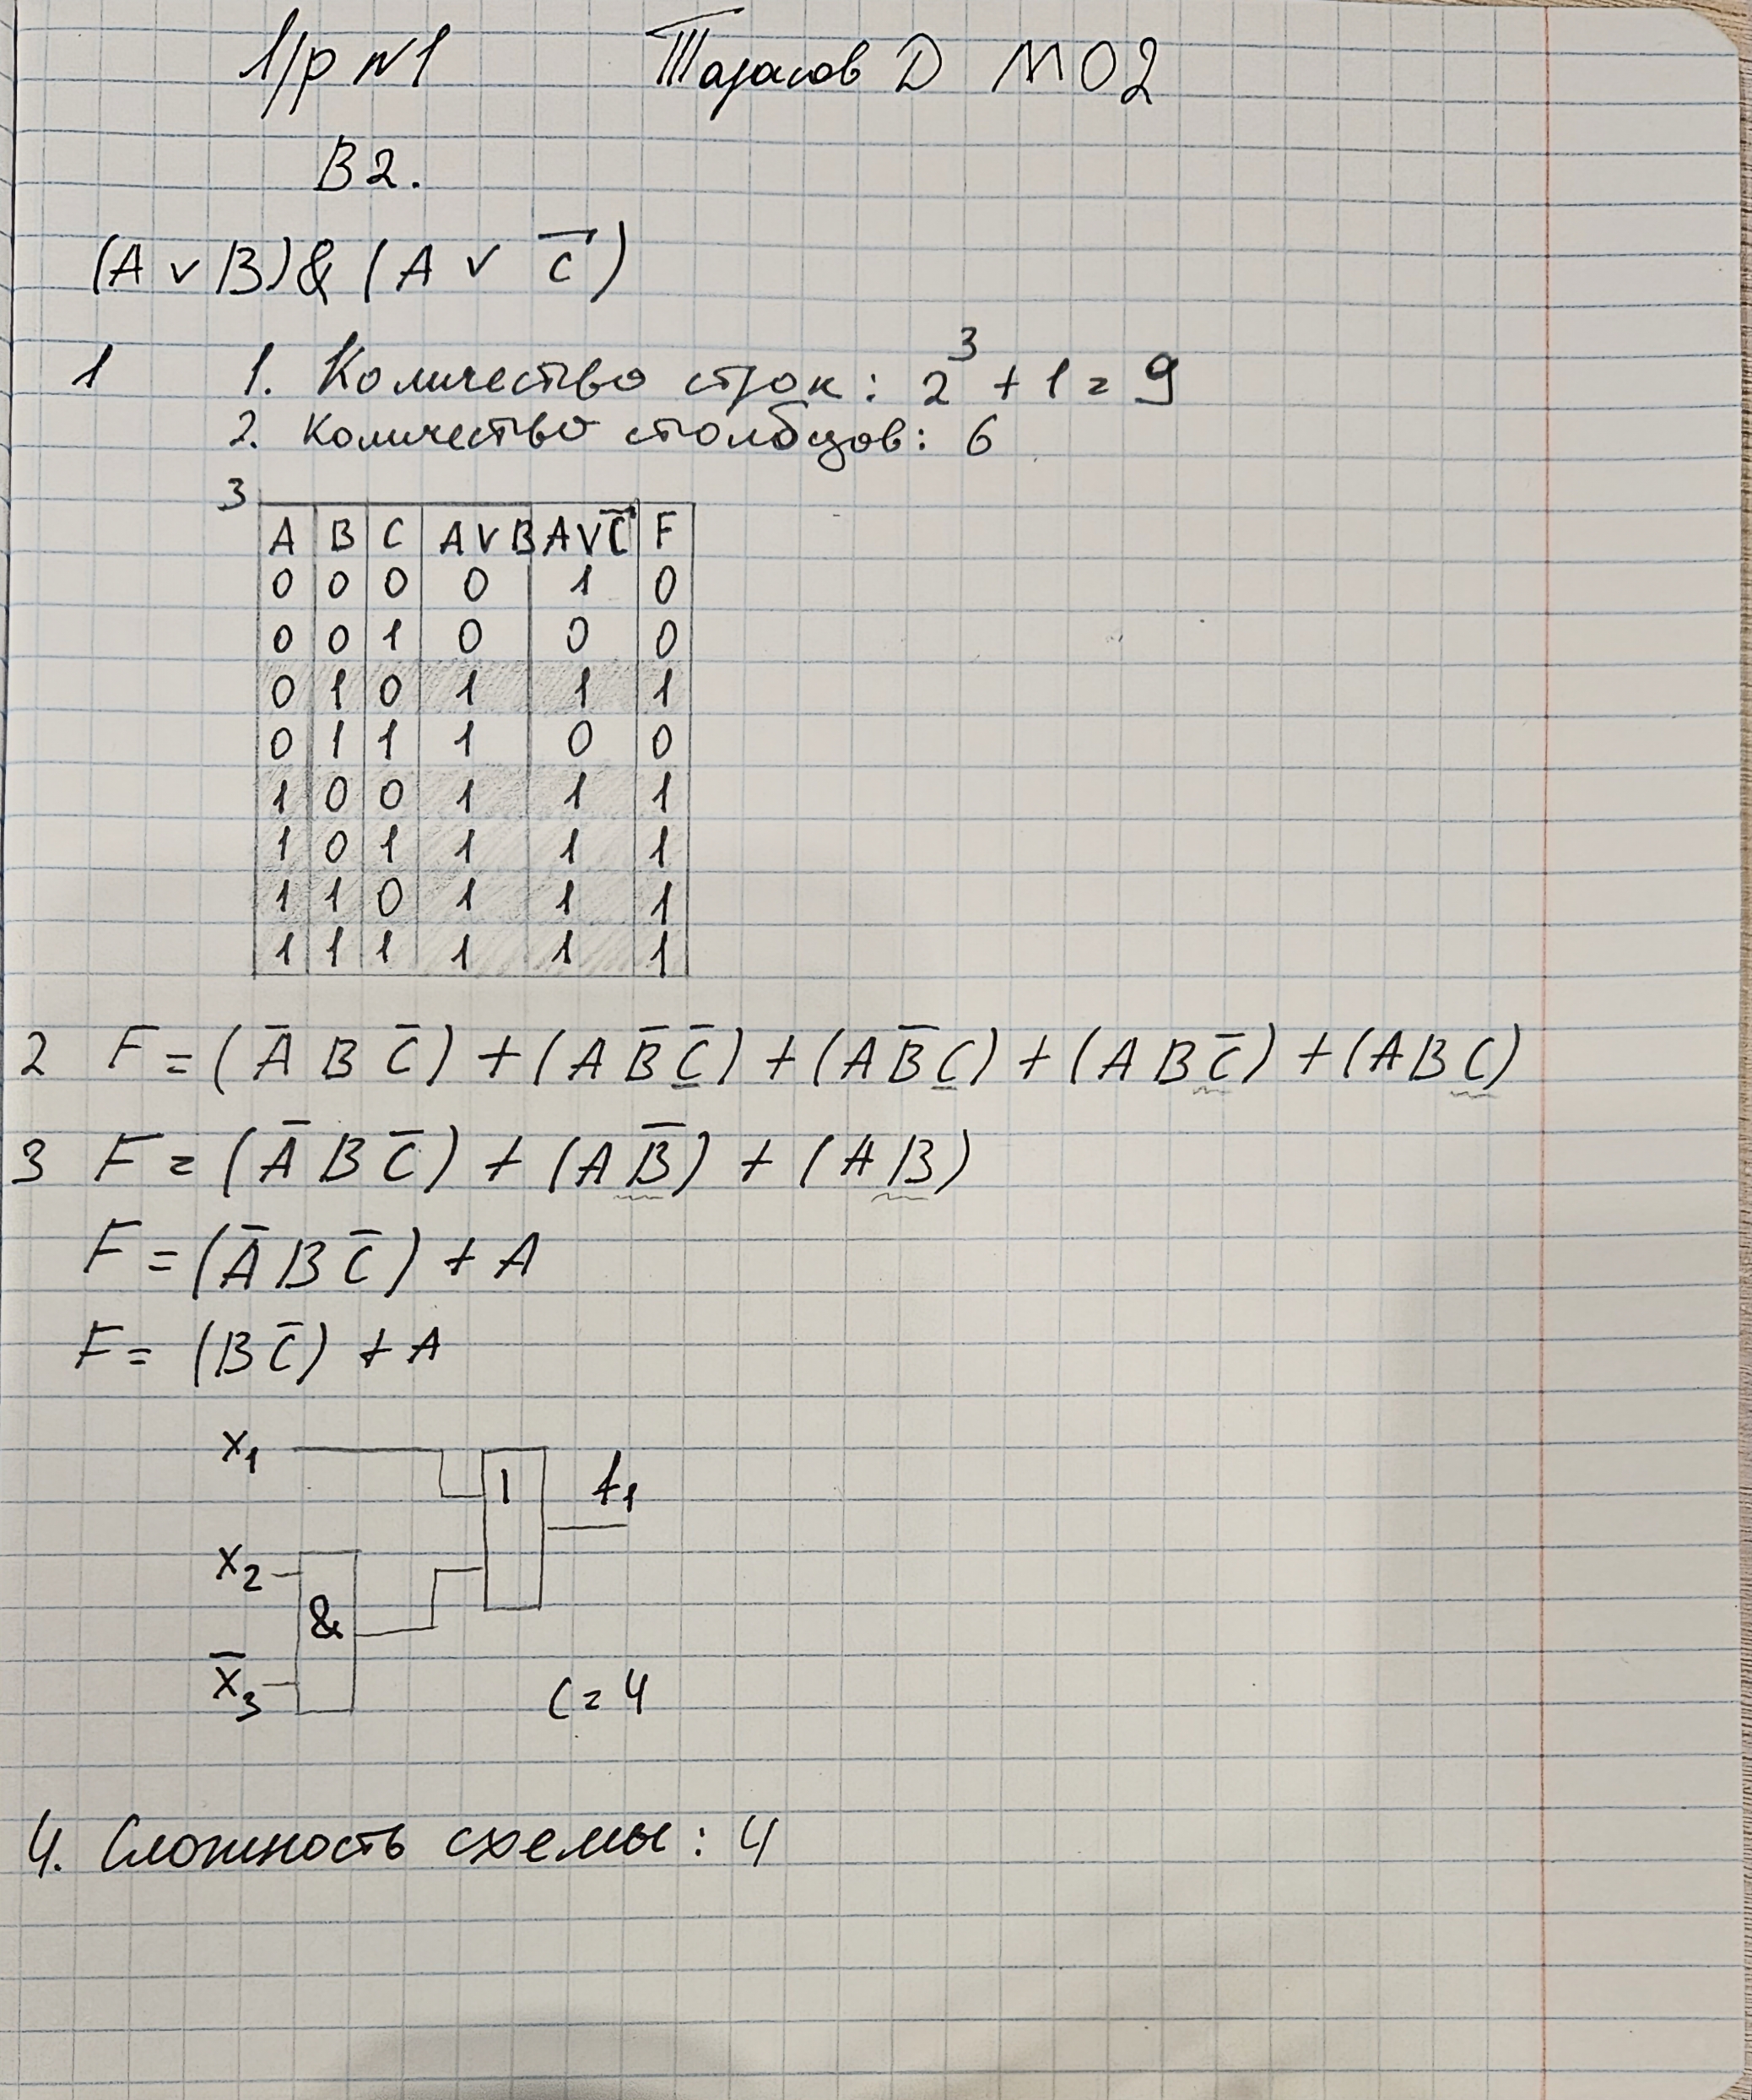 л/р №1 Тарасов Д МО2
В2.
(A ∨ B)&(A ∨ C̅)
1 1. Количество строк: 2³ + 1 = 9
2. Количество столбцов: 6
3
A B C A∨B A∨C̅ F
0 0 0 0 1 0
0 0 1 0 0 0
0 1 0 1 1 1
0 1 1 1 0 0
1 0 0 1 1 1
1 0 1 1 1 1
1 1 0 1 1 1
1 1 1 1 1 1
2 F = (A̅ B C̅) + (A B̅ C̅) + (A B̅ C) + (A B C̅) + (A B C)
3 F = (A̅ B C̅) + (A B̅) + (A B)
F = (A̅ B C̅) + A
F = (B C̅) + A
x₁
1 f₁
x₂
&
x̅₃
C = 4
4. Сложность схемы: 4